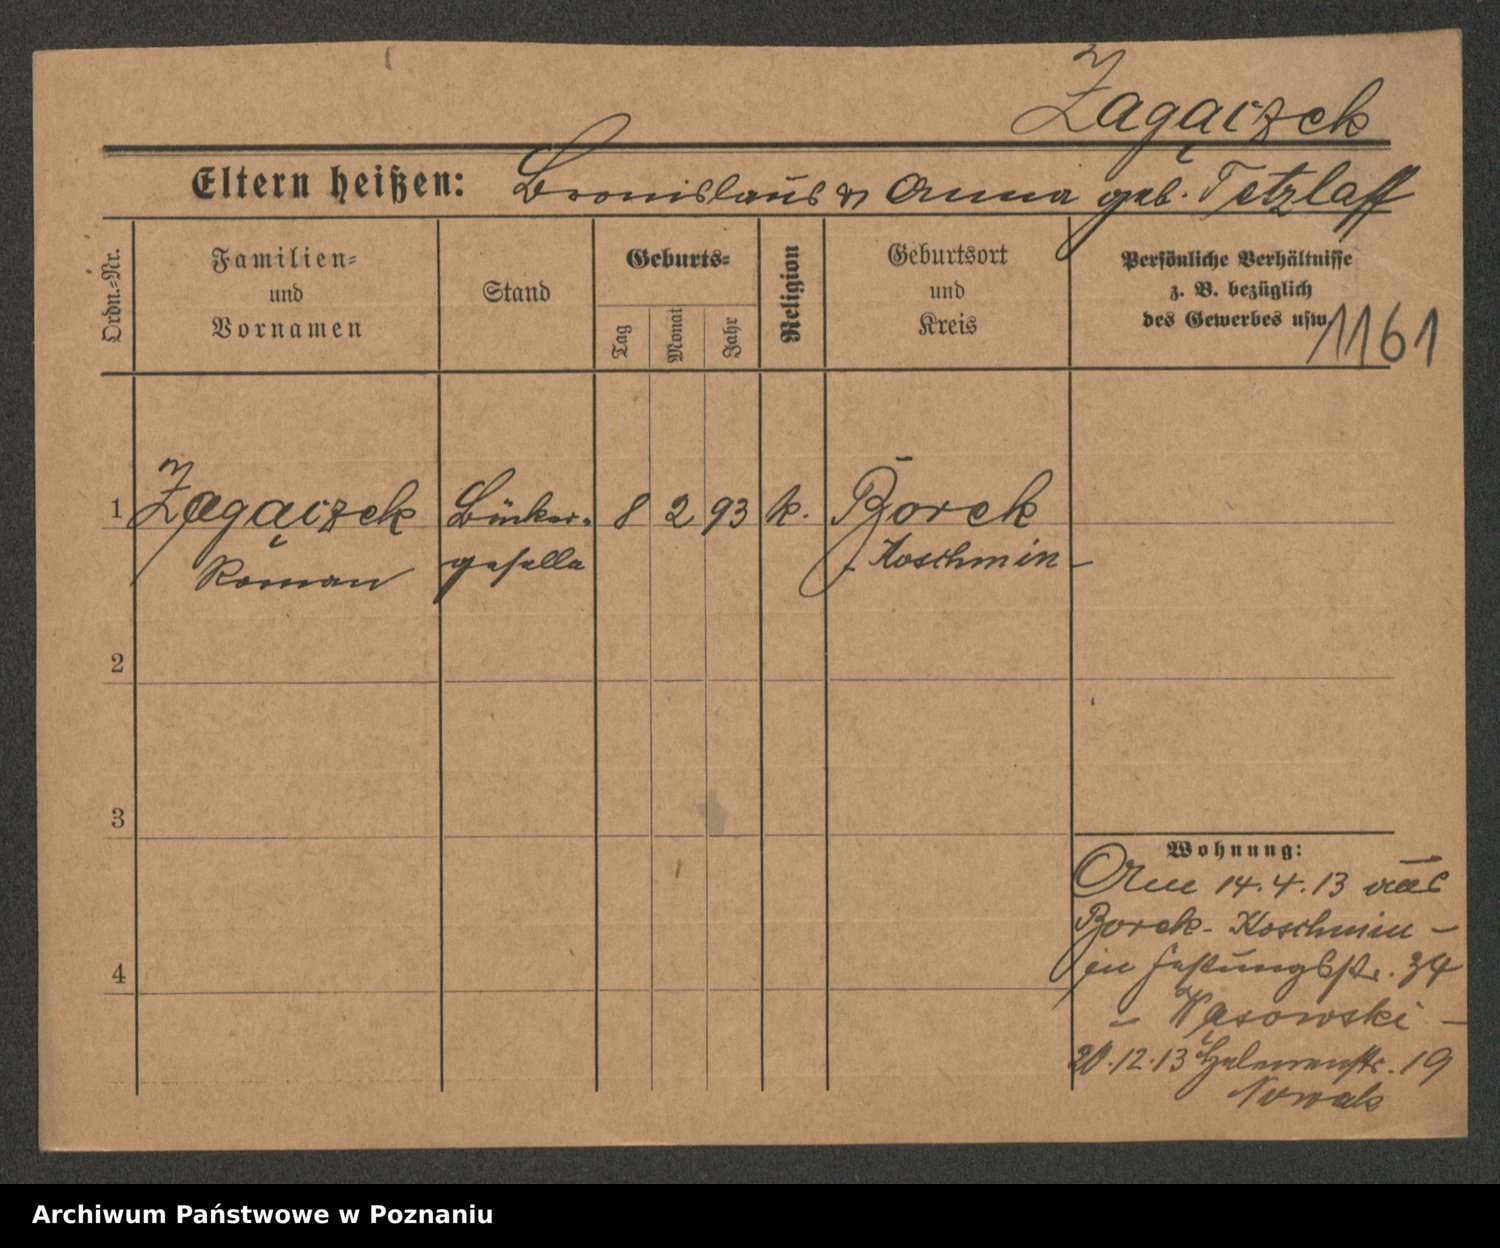 Zagączek
Eltern heißen: Bronislaus & Anna geb. Tetzlaff
Ordn.-Nr.
Familien-
und
Vornamen
Stand
Geburts-
Tag
Monat
Jahr
Religion
Geburtsort
und
Kreis
Persönliche Verhältnisse
z. B. bezüglich
des Gewerbes usw.
1161
1 Zagączek Bäcker- 8 2 93 k. Borek
Roman geselle - Koschmin -
2
3
4
Wohnung:
Am 14.4.13 aus
Borek - Koschmin -
in Festungsstr. 34
- Wąsowski -
20.12.13 19
Nowak
Archiwum Państwowe w Poznaniu